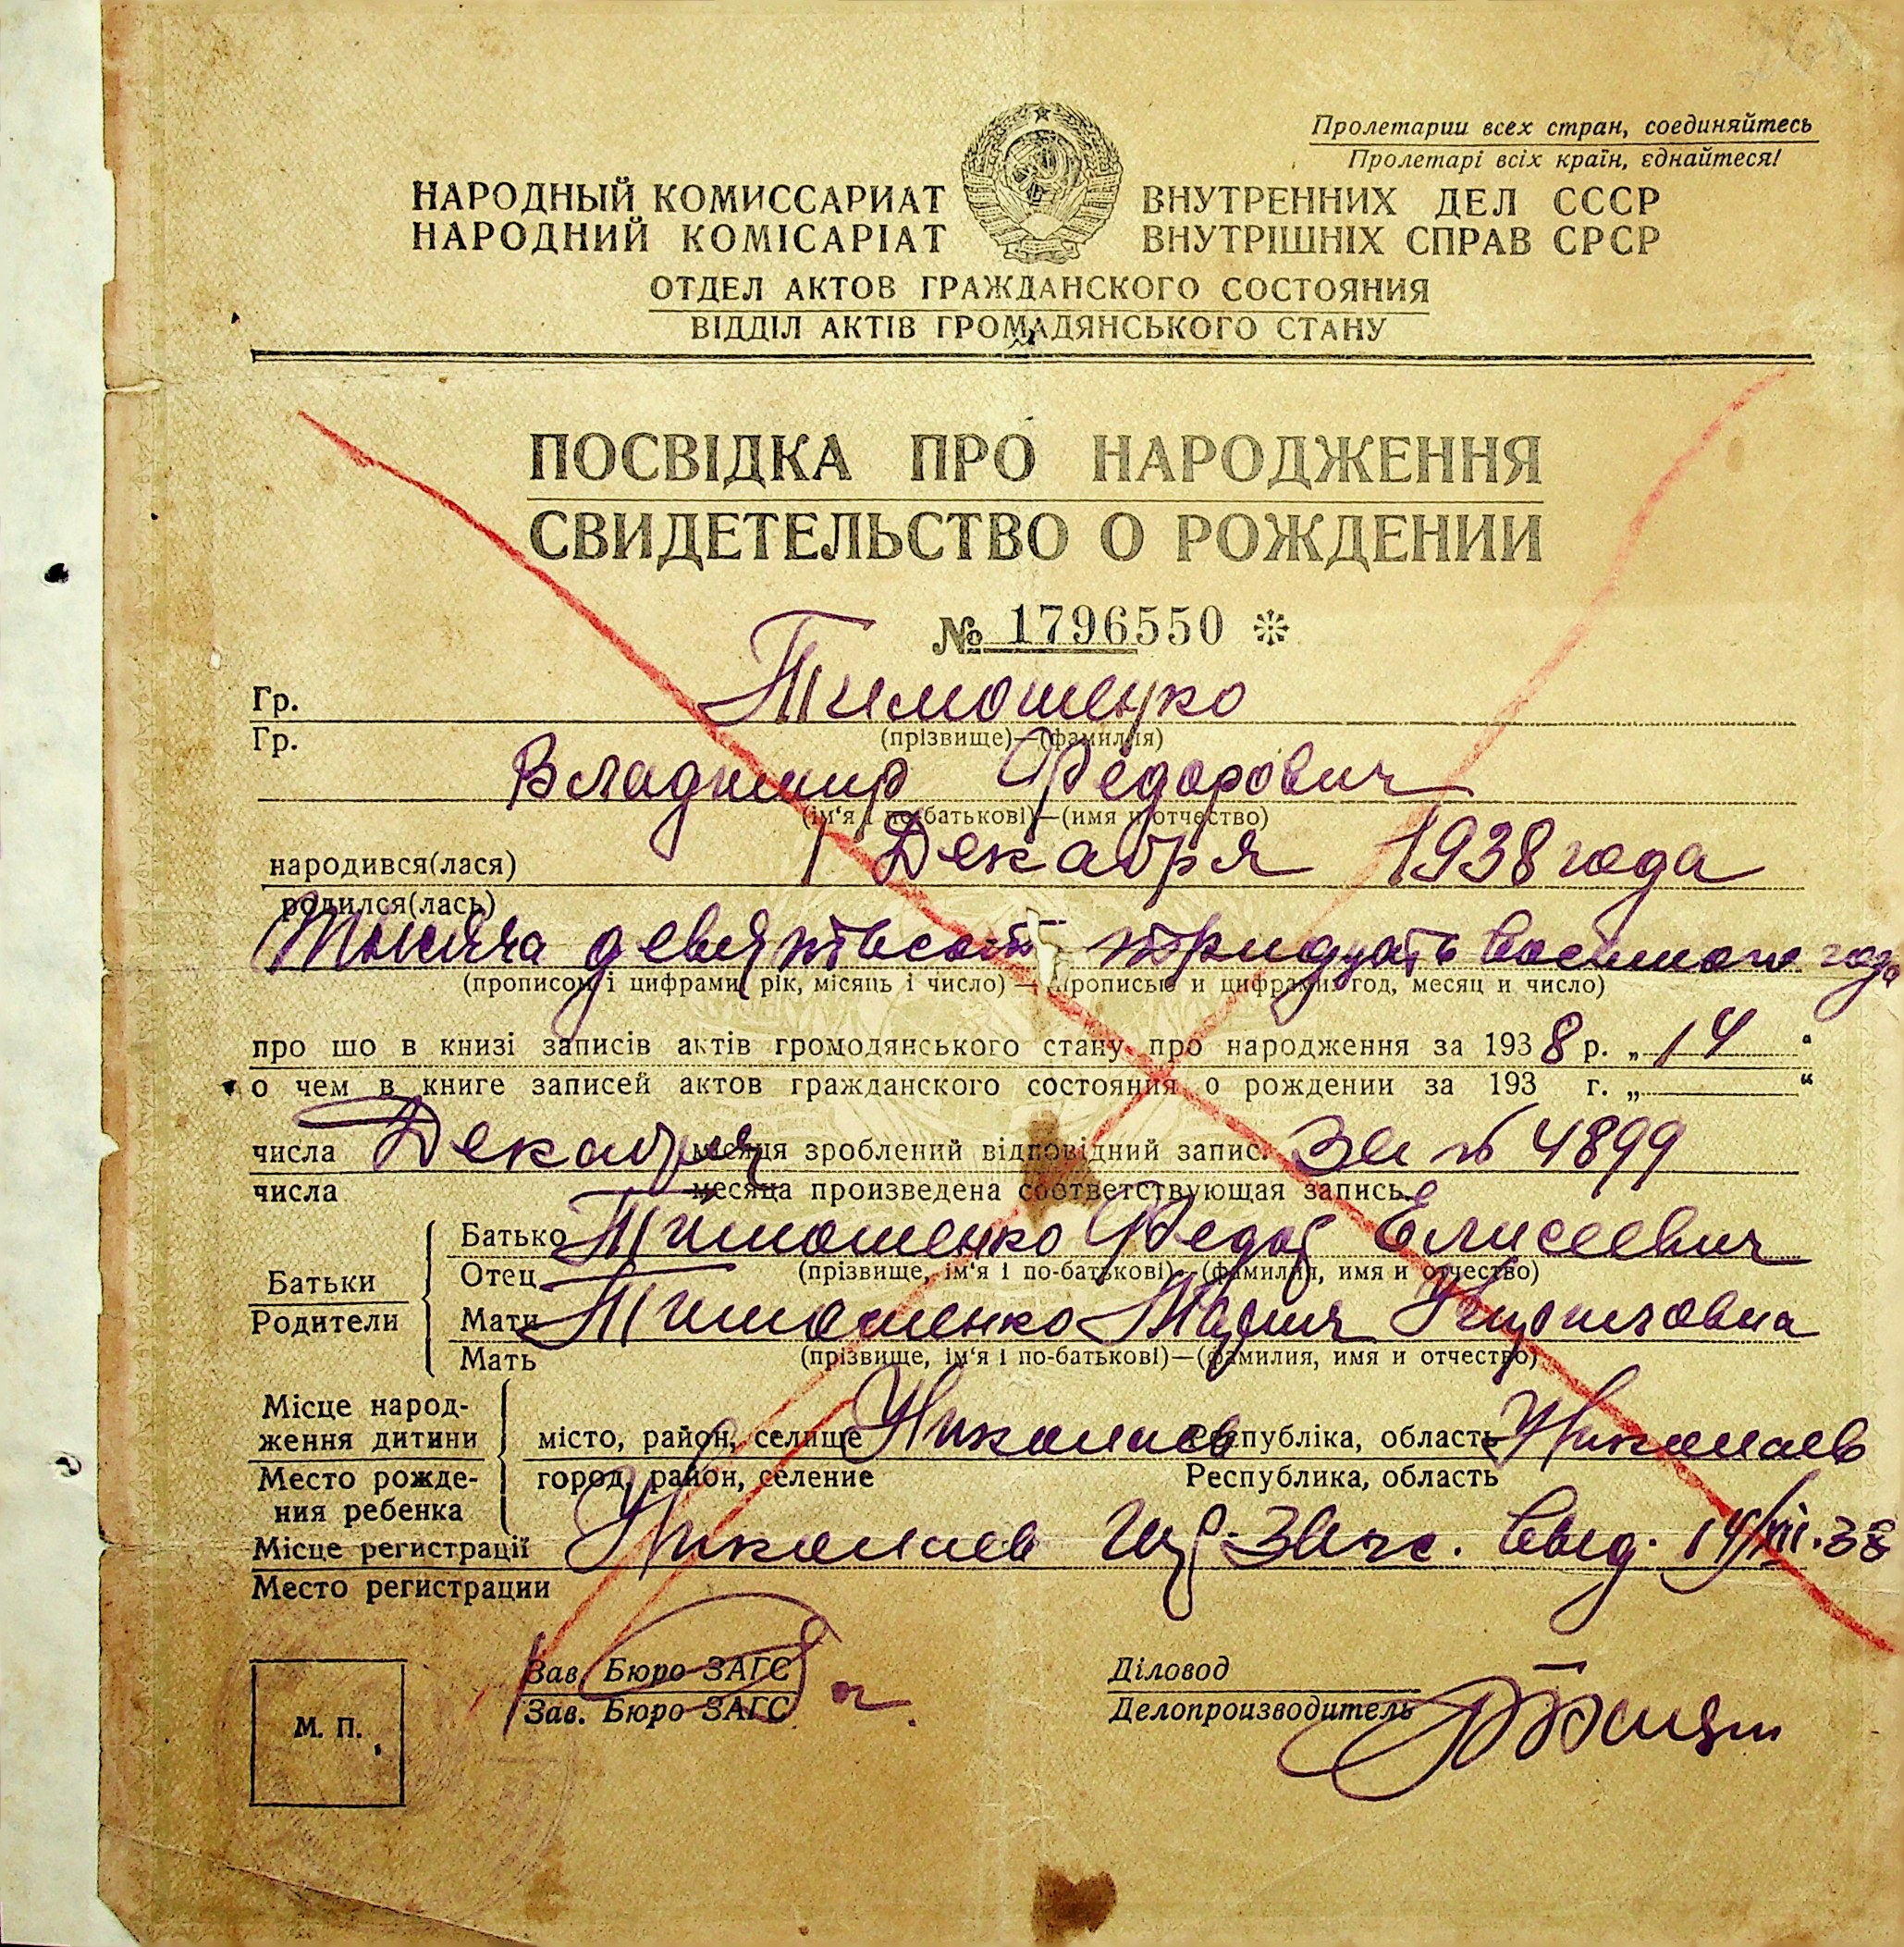 Пролетарии всех стран, соединяйтесь
Пролетарі всіх країн, єднайтеся!
НАРОДНЫЙ КОМИССАРИАТ ВНУТРЕННИХ ДЕЛ СССР
НАРОДНИЙ КОМІСАРІАТ ВНУТРІШНІХ СПРАВ СРСР
ОТДЕЛ АКТОВ ГРАЖДАНСКОГО СОСТОЯНИЯ
ВІДДІЛ АКТІВ ГРОМАДЯНСЬКОГО СТАНУ
ПОСВІДКА ПРО НАРОДЖЕННЯ
СВИДЕТЕЛЬСТВО О РОЖДЕНИИ
№ 1796550
Гр. Тимошенко
Гр. (прізвище)—(фамилия)
Владимир Федорович
(ім'я і по-батькові)—(имя и отчество)
народився(лася) 1 Декабря 1938 года
родился(лась)
Тысяча девятьсот тридцать восьмого года
(прописом і цифрами рік, місяць і число) — (прописью и цифрами год, месяц и число)
про шо в книзі записів актів громодянського стану про народження за 1938 р. „14“
о чем в книге записей актов гражданского состояния о рождении за 193 г. „ “
числа Декабря місяця зроблений відповідний запис. За № 4899
числа месяца произведена соответствующая запись.
Батьки Батько Тимошенко Федор Елисеевич
Отец (прізвище, ім'я і по-батькові)—(фамилия, имя и отчество)
Родители Мати Тимошенко Мария
Мать (прізвище, ім'я і по-батькові)—(фамилия, имя и отчество)
Місце народ-
ження дитини місто, район, селище Николаев Республіка, область Николаев
Место рожде- город, район, селение Республика, область
ния ребенка
Місце регистрації Николаев Загс. выд. 14/XII.38
Место регистрации
М. П.
Зав. Бюро ЗАГС Діловод
Зав. Бюро ЗАГС Делопроизводитель